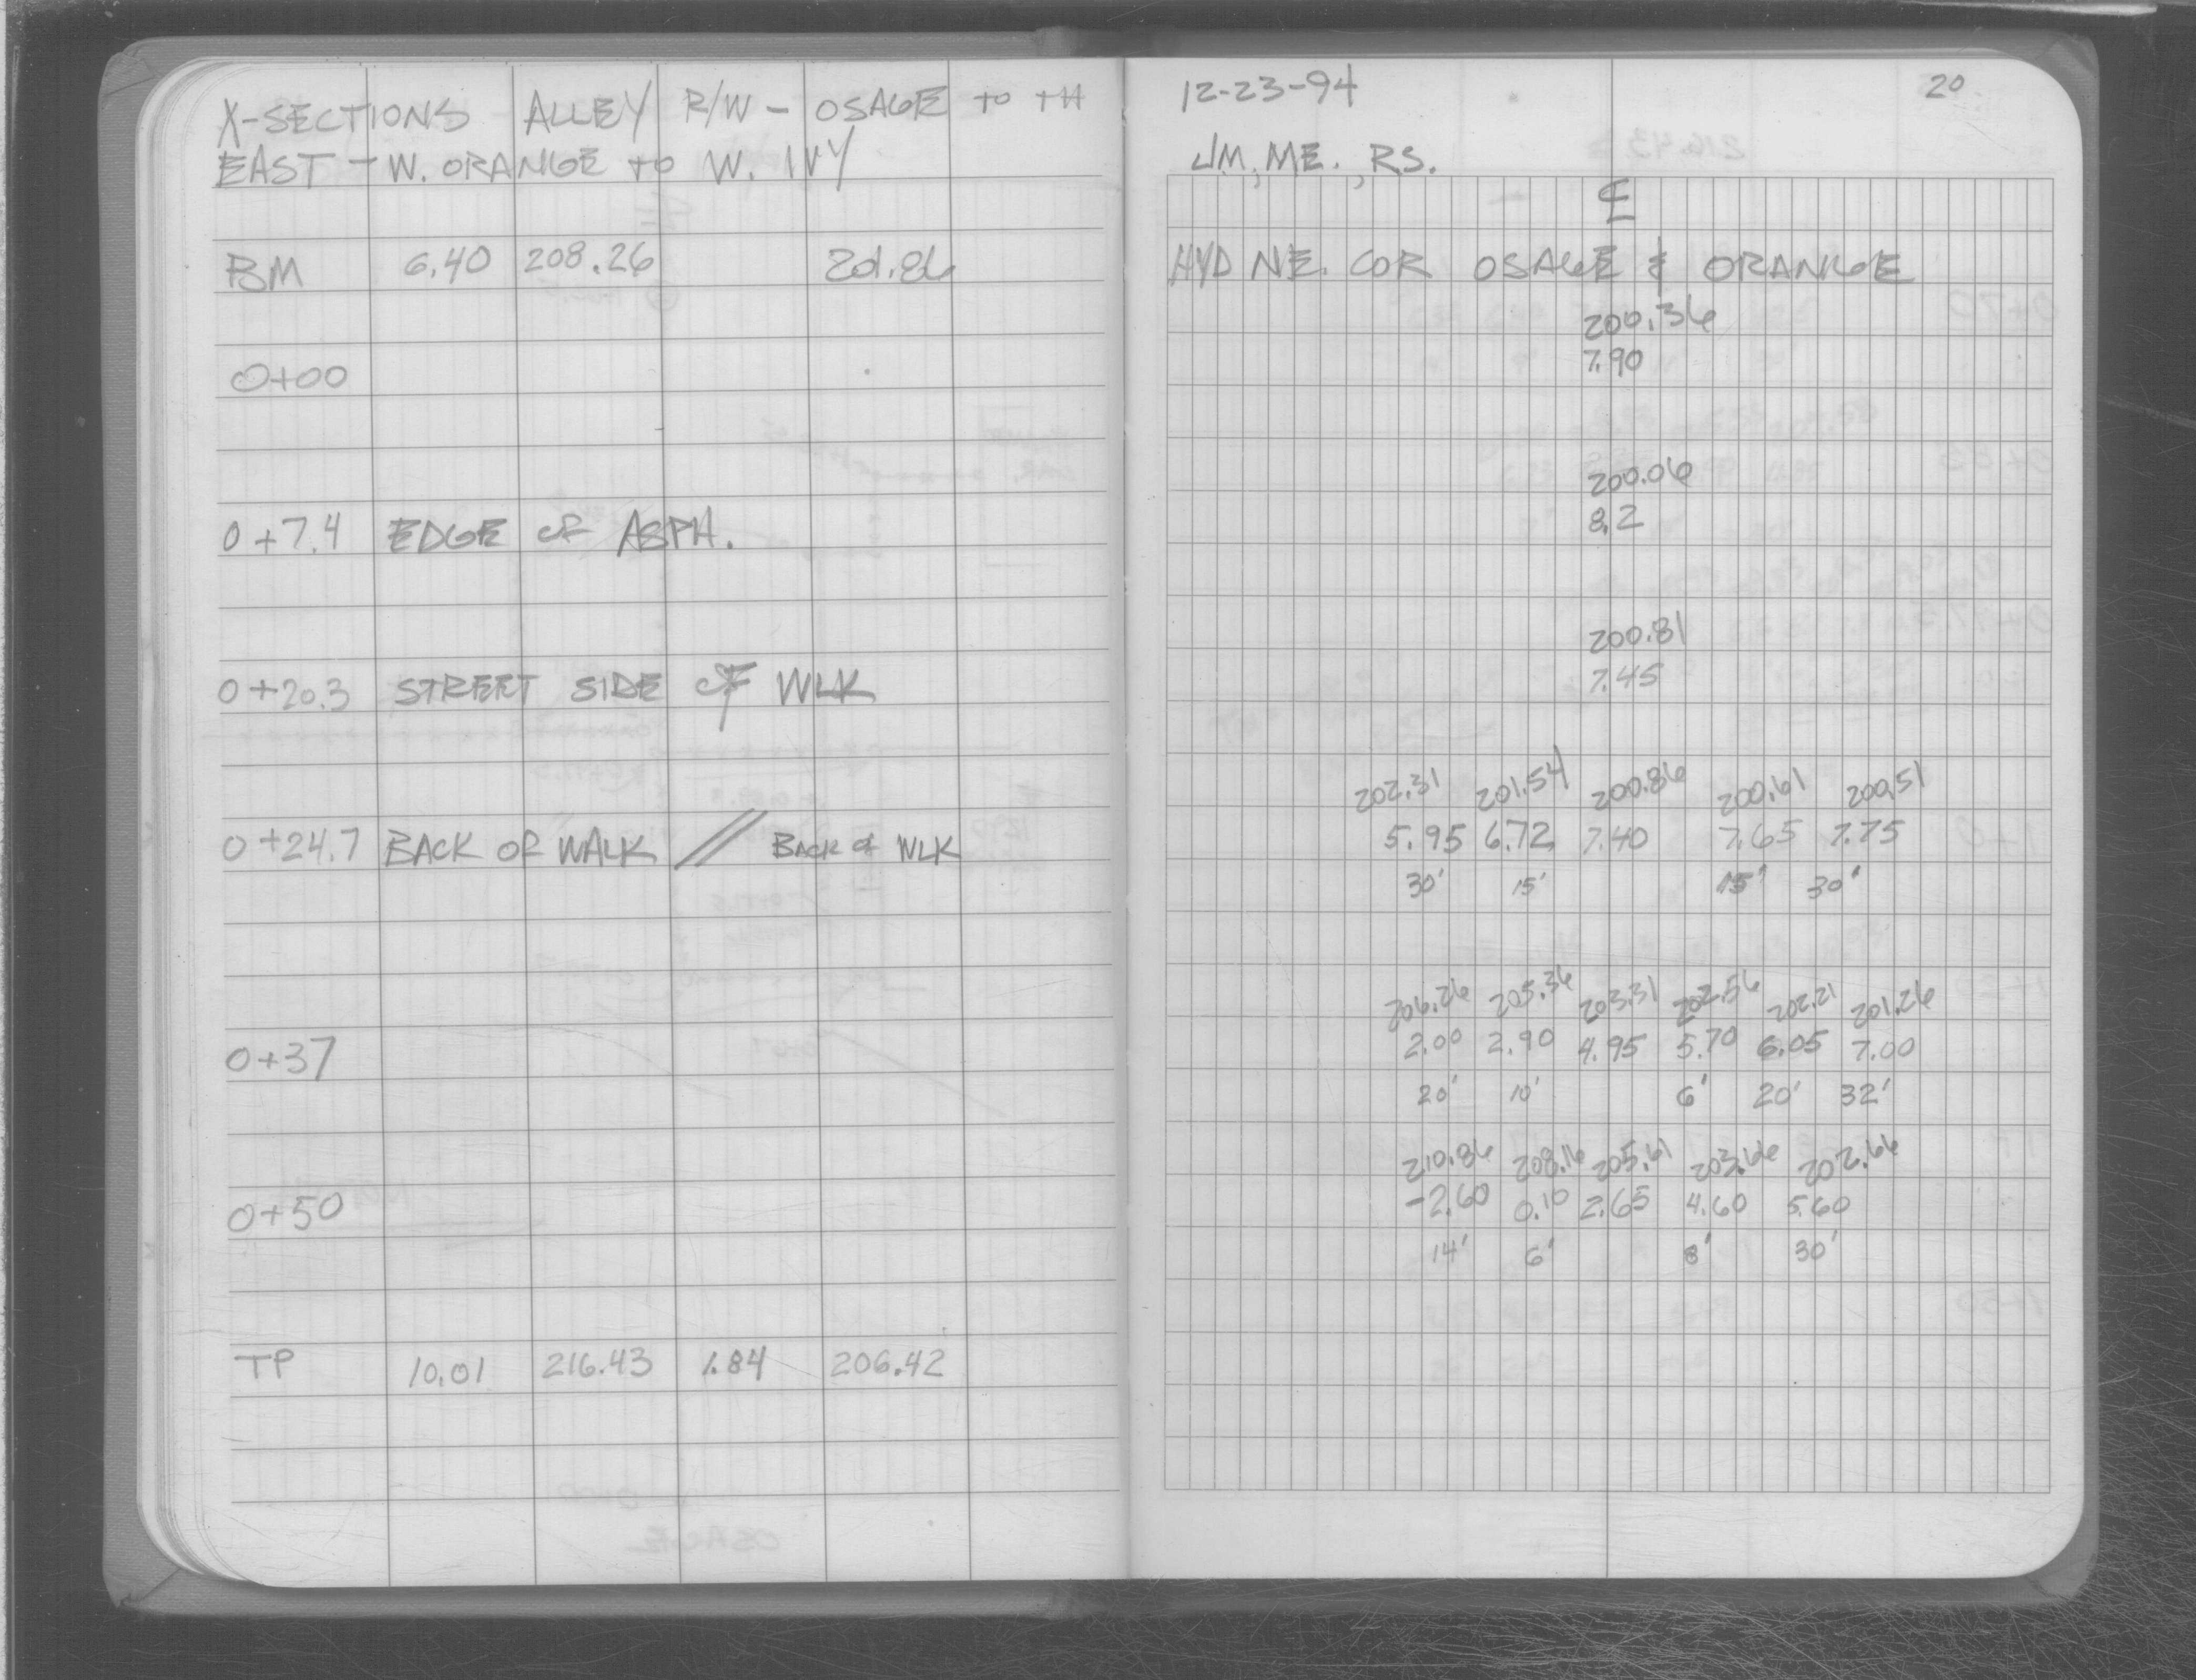 X-SECTIONS ALLEY R/W - OSAGE to TH
EAST - W. ORANGE to W. IVY
BM 6.40 208.26 201.86
0+00
0+7.4 EDGE OF ASPH.
0+20.3 STREET SIDE OF WLK
0+24.7 BACK OF WALK // BACK of WLK
0+37
0+50
TP 10.01 216.43 1.84 206.42
12-23-94 20
JM, ME., RS.
℄
HYD NE. COR OSAGE & ORANGE
200.36
7.90
200.06
8.2
200.81
7.45
202.31 201.54 200.86 200.61 200.51
5.95 6.72 7.40 7.65 7.75
30' 15' 15' 30'
206.26 205.36 203.31 202.56 202.21 201.26
2.00 2.90 4.95 5.70 6.05 7.00
20' 10' 6' 20' 32'
210.86 208.16 205.61 203.66 202.66
-2.60 0.10 2.65 4.60 5.60
14' 6' 8' 30'